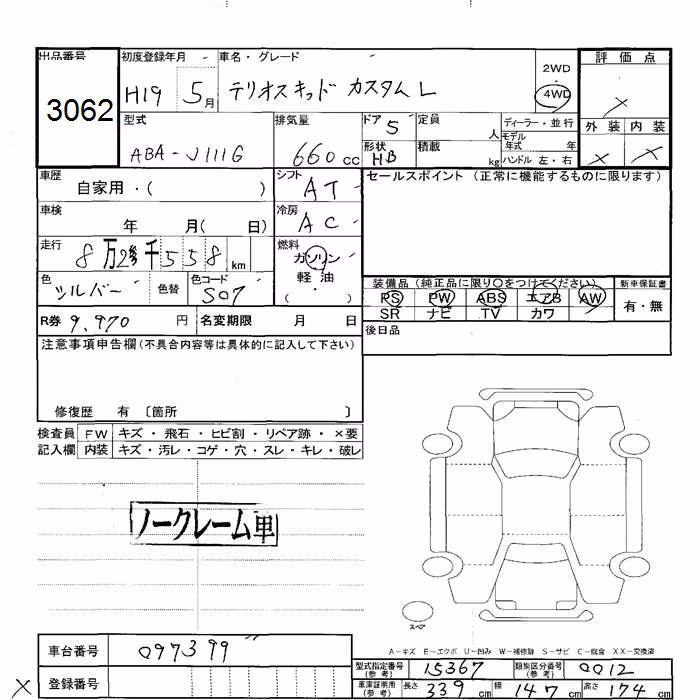 出品番号 初度登録年月 車名・グレード 評価点
3062 H19 5月 テリオスキッド カスタム L 2WD 4WD ×
型式 排気量 ドア 5 定員 人 ディーラー・並行 外装 内装
ABA-J111G 660cc 形状 HB 積載 kg モデル年式 年 ハンドル 左・右 × ×
車歴 自家用・( ) シフト AT セールスポイント(正常に機能するものに限ります)
車検 年 月( 日) 冷房 AC
走行 8万2千558km 燃料 ガソリン・軽油 ( ・ )
色 シルバー 色替 色コード S07 装備品(純正品に限り〇をつけてください) 新車保証書
PS PW ABS エアB AW 有・無
SR ナビ TV カワ
R券 9,970円 名変期限 月 日 後日品
注意事項申告欄(不具合内容等は具体的に記入して下さい)
修復歴 有 〔箇所 〕
検査員 FW キズ・飛石・ヒビ割・リペア跡・×要
記入欄 内装 キズ・汚レ・コゲ・穴・スレ・キレ・破レ
ノークレーム車
スペア
A－キズ E－エクボ U－凹み W－補修跡 S－サビ C－腐食 XX－交換済
車台番号 097399 型式指定番号(参考) 15367 類別区分番号(参考) 0012
× 登録番号 車庫証明用(参考) 長さ 339cm 幅 147cm 高さ 174cm